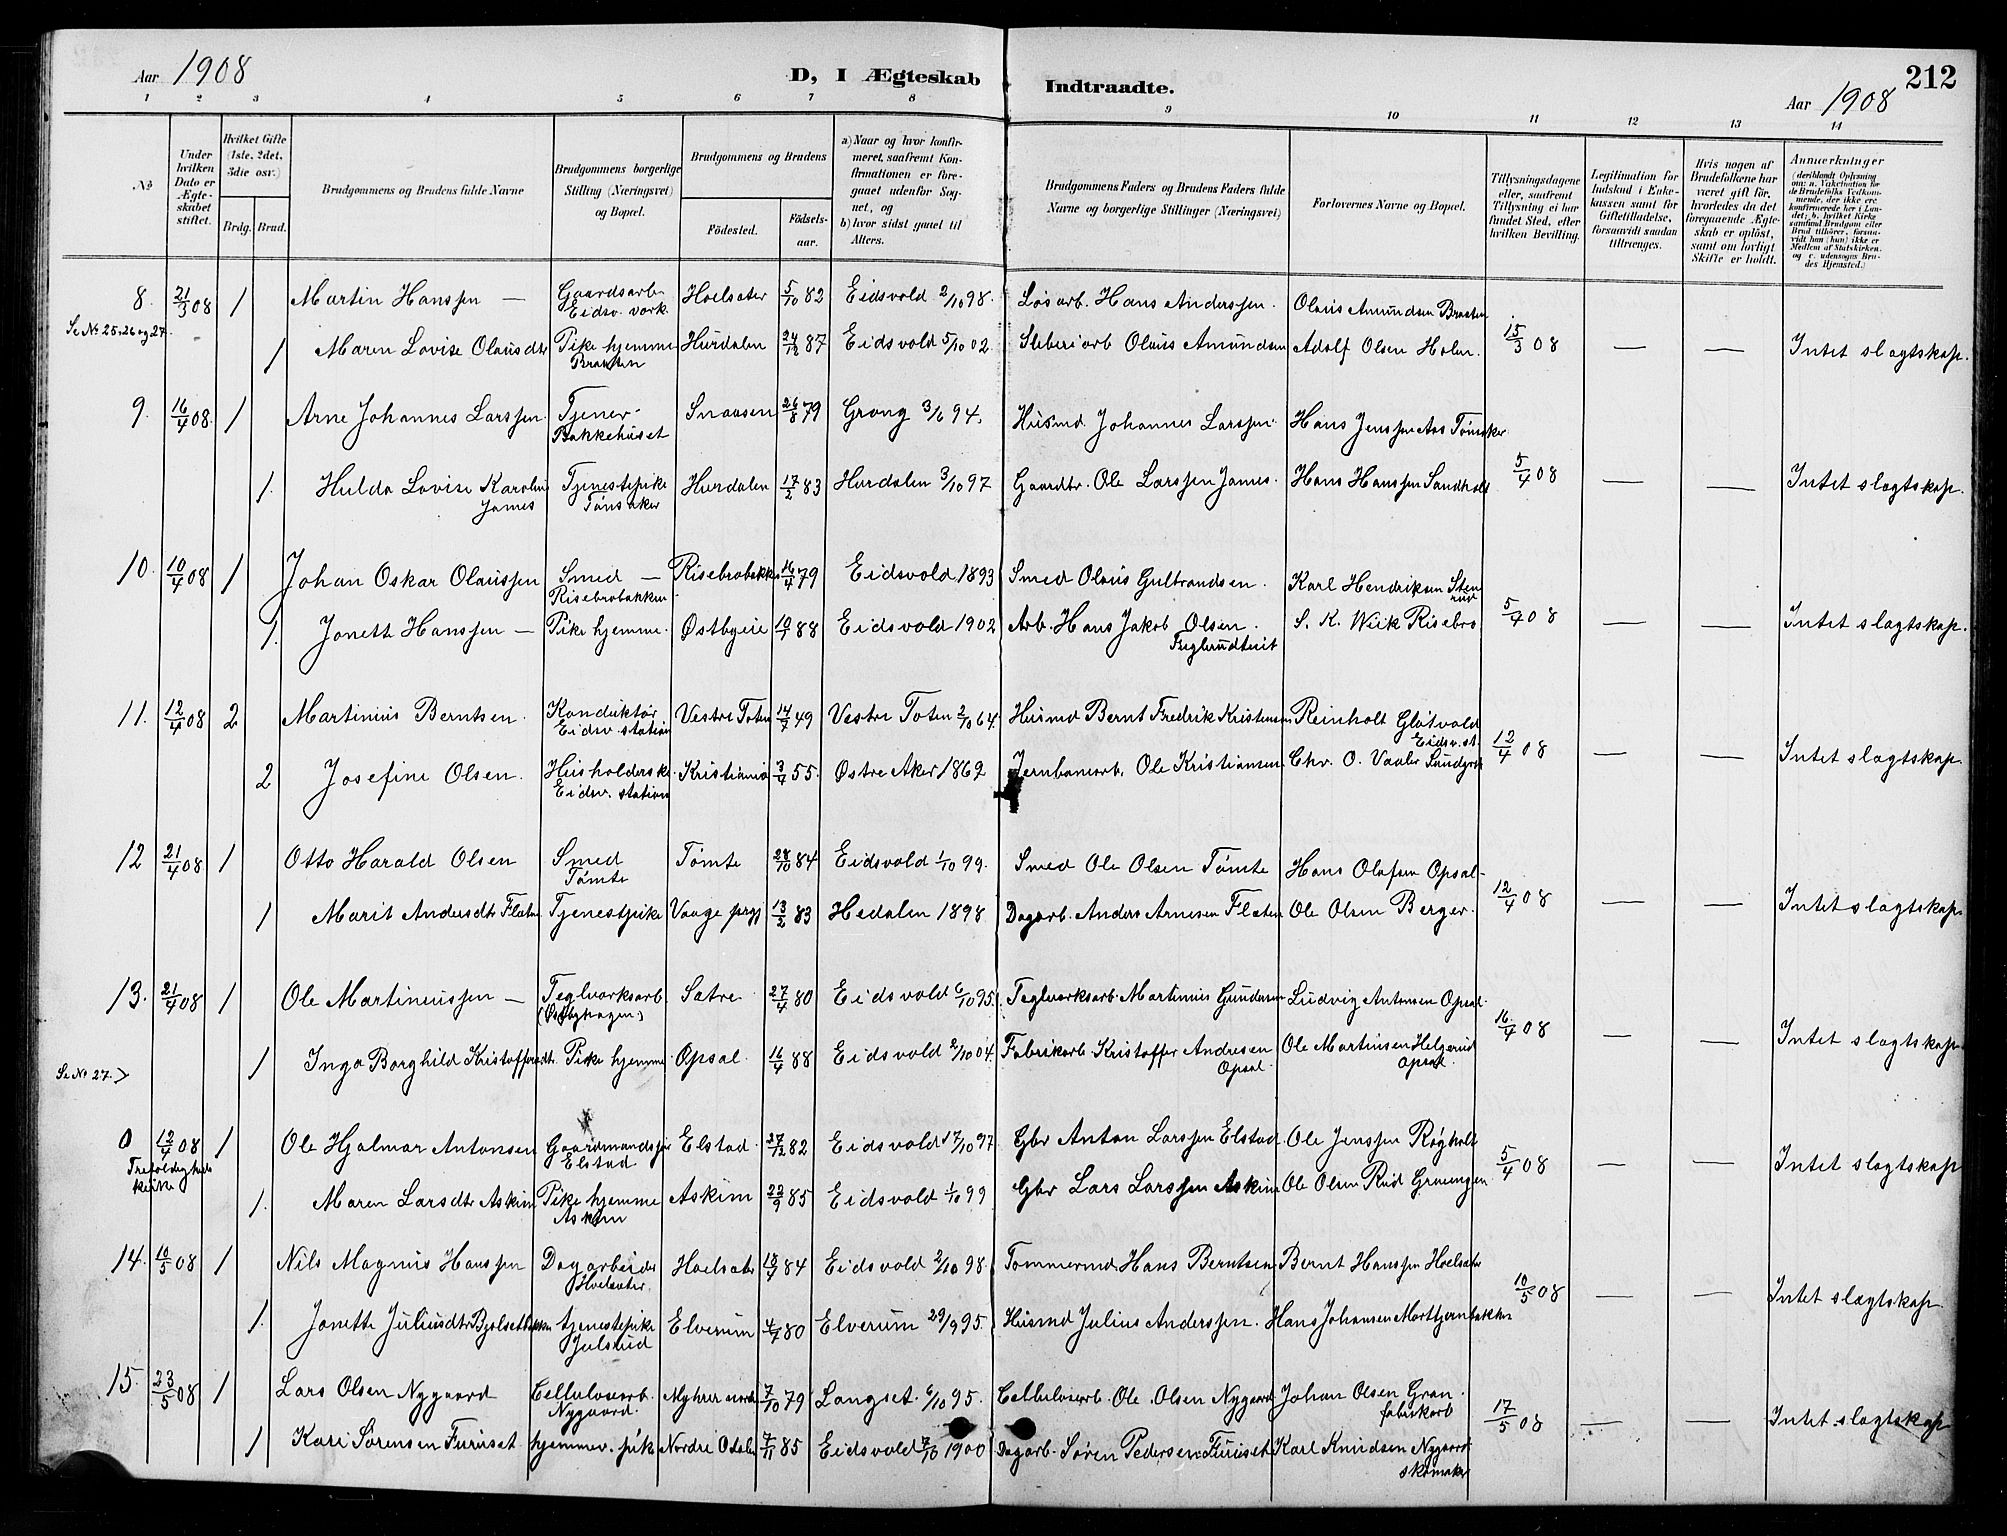 Aar 1908
D, I Ægteskab Indtraadte.
212
Aar 1908
1 2 3 4 5 6 7 8 9 10 11 12 13 14
No
Under hvilken Dato er Ægteskabet stiftet.
Hvilket Gifte (1ste, 2det, 3die osv.)
Brdg. Brud.
Brudgommens og Brudens fulde Navne
Brudgommens borgerlige Stilling (Næringsvei) og Bopæl.
Brudgommens og Brudens
Fødested. Fødselsaar.
a) Naar og hvor konfirmeret, saafremt Konfirmationen er foregaaet udenfor Sognet, og
b) hvor sidst gaaet til Alters.
Brudgommens Faders og Brudens Faders fulde Navne og borgerlige Stillinger (Næringsvei)
Forlovernes Navne og Bopæl.
Tillysningsdagene eller, saafremt Tillysning ei har fundet Sted, efter hvilken Bevilling.
Legitimation for Indskud i Enkekassen samt for Giftetilladelse, forsaavidt saadan tiltrænges.
Hvis nogen af Brudefolkene har været gift før, hvorledes da det foregaaende Ægteskab er opløst, samt om lovligt Skifte er holdt.
Anmærkninger (deriblandt Oplysning om: a. Vakcination for de Brudefolks Vedkommende, der ikke ere konfirmerede her i Landet; b. hvilket Kirkesamfund Brudgom eller Brud tilhører, forsaavidt han (hun) ikke er Medlem af Statskirken, og c. udensogns Brudes Hjemsted.)
8. 21/3 08 1 Martin Hanssen — Gaardsarb. Eidsv. værk Hoelsæter 5/10 82 Eidsvold 2/10 98. Løsarb. Hans Anderssen. Olaus Amundsen Braaten
Se No 25, 26 og 27.
1 Maren Lovise Olausdtr Pike hjemme Braaten Hurdalen 24/12 87 Eidsvold 5/10 02 Sliberiarb Olaus Amundsen Adolf Olsen Holm. 15/3 08 — — Intet slægtskap.
9. 16/4 08. 1 Arne Johannes Larssen. Tjener Bakkehuset Snaasen 26/8 79 Grong 3/6 94. Husmd Johannes Larssen. Hans Jenssen Aas Tønsaker
1. Hulda Lovise Karoline James Tjenestepike Tønsaker Hurdalen 17/2 83 Hurdalen 3/10 97 Gaardbr. Ole Larssen James. Hans Hanssen Sandholt 5/4 08 — — Intet slægtskap.
10. 10/4 08 1 Johan Oskar Olaussen Smed — Risebrobakken Risebrobakken 16/4 79 Eidsvold 1893 Smed Olaus Gulbrandsen. Karl Hendriksen Stensrud
1. Jonette Hanssen — Pike hjemme. Østbyeie 10/7 88 Eidsvold 1902 Arb. Hans Jakob Olsen. Teglerudteit S. K. Wiik Risebro 5/4 08 — — Intet slægtskap.
11. 12/4 08 2 Martinius Berntsen. Konduktør Eidsv. station Vestre Toten 14/7 49 Vestre Toten 2/10 64. Husmd Bernt Fredrik Kristensen Reinholt Gløtvold Eidsv. st.
2 Josefine Olsen. Husholderske Eidsv. station Kristiania 3/4 55. Østre Aker 1869 Jernbanearb. Ole Kristiansen. Chr. O. Vaaler Sundgt 12/4 08 — — Intet slægtskap
12 21/4 08 1 Otto Harald Olsen Smed Tømte Tømte 28/10 84 Eidsvold 1/10 99. Smed Ole Olsen Tømte Hans Olafsen Opsal-
1 Marit Andersdtr Flaten Tjenestpike Vaage prgj 13/2 83 Hedalen 1898 Dagarb. Anders Arnesen Flaten Ole Olsen Berger. 12/4 08 — — Intet slægtskap
13. 21/4 08 1 Ole Martineussen — Teglværksarb. (Østbyhagen) Sætre 27/4 80 Eidsvold 6/10 95. Teglværksarb. Martinus Gundersen Ludvig Antonsen Opsal.
1 Inga Borghild Kristoffersdtr. Pike hjemme Opsal. 16/4 88 Eidsvold 2/10 04. Fabrikarb Kristoffer Andresen Opsal Ole Martinsen Helgerud Opsal 16/4 08 — — Intet slægtskap
Se No 27.
0 12/4 08 1 Ole Hjalmar Antonsen Gaardmandssøn Elstad Elstad 27/12 82 Eidsvold 17/10 97. Gbr Anton Larssen Elstad Ole Jenssen Røgholt
Trefoldigheds kirke
1. Maren Larsdtr Askim Pike hjemme Askim Askim 22/9 85 Eidsvold 1/10 99 Gbr Lars Larssen Askim Ole Olsen Rud 5/4 08 — — Intet slægtskap
14. 10/5 08 1 Nils Magnus Hanssen Dagarbeider Hoelsæter. Hoelsæter 18/7 84 Eidsvold 2/10 98. Tømmermd Hans Berntsen Bernt Hanssen Hoelsæter
1. Jonette Juliusdtr Bjølsetbakken tjenestepike Julsrud Elverum 4/7 80 Elverum 29/9 95. Husmd Julius Anderssen. Hans Johansen Morttjernbakken 10/5 08 — — Intet slægtskap.
15. 23/5 08 1 Lars Olsen Nygaard Cellulosearb. Nygaard. Myhrer nordre 7/10 79 Langset. 6/10 95. Cellulosearb. Ole Olsen Nygaard Johan Olsen Gran. fabrikarb
1 Kari Sørensen Furuset hjemmev. pike Nordre Odalen 7/11 85 Eidsvold 7/10 1900 Dagarb. Søren Pedersen Furuset Karl Knudsen Nygaard skomaker 17/5 08 — — Intet slægtskap